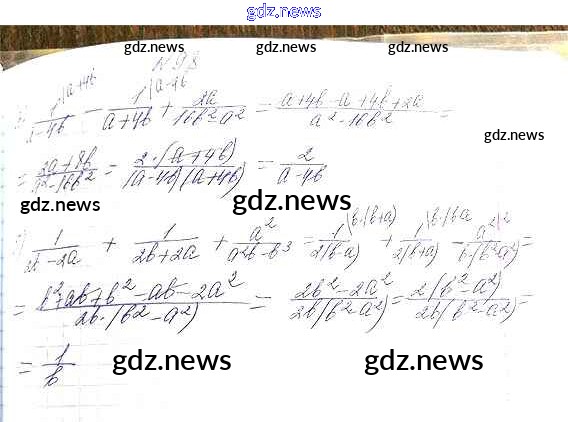 gdz.news
gdz.news gdz.news gdz.news
N 98
1/(a-4b) |a+4b - 1/(a+4b) |a-4b + 2a/(16b²-a²) = (a+4b-a+4b+2a)/(a²-16b²) =
gdz.news
= (2a+8b)/(a²-16b²) = 2·(a+4b)/((a-4b)(a+4b)) = 2/(a-4b)
gdz.news gdz.news gdz.news
1/(2b-2a) + 1/(2b+2a) + a²/(a²b-b³) = 1/(2(b-a)) |b·(b+a) + 1/(2(b+a)) |b·(b-a) - a²/(b·(b²-a²)) |2 =
= (b²+ab+b²-ab-2a²)/(2b·(b²-a²)) = (2b²-2a²)/(2b(b²-a²)) = 2(b²-a²)/(2b(b²-a²)) =
= 1/b
gdz.news gdz.news